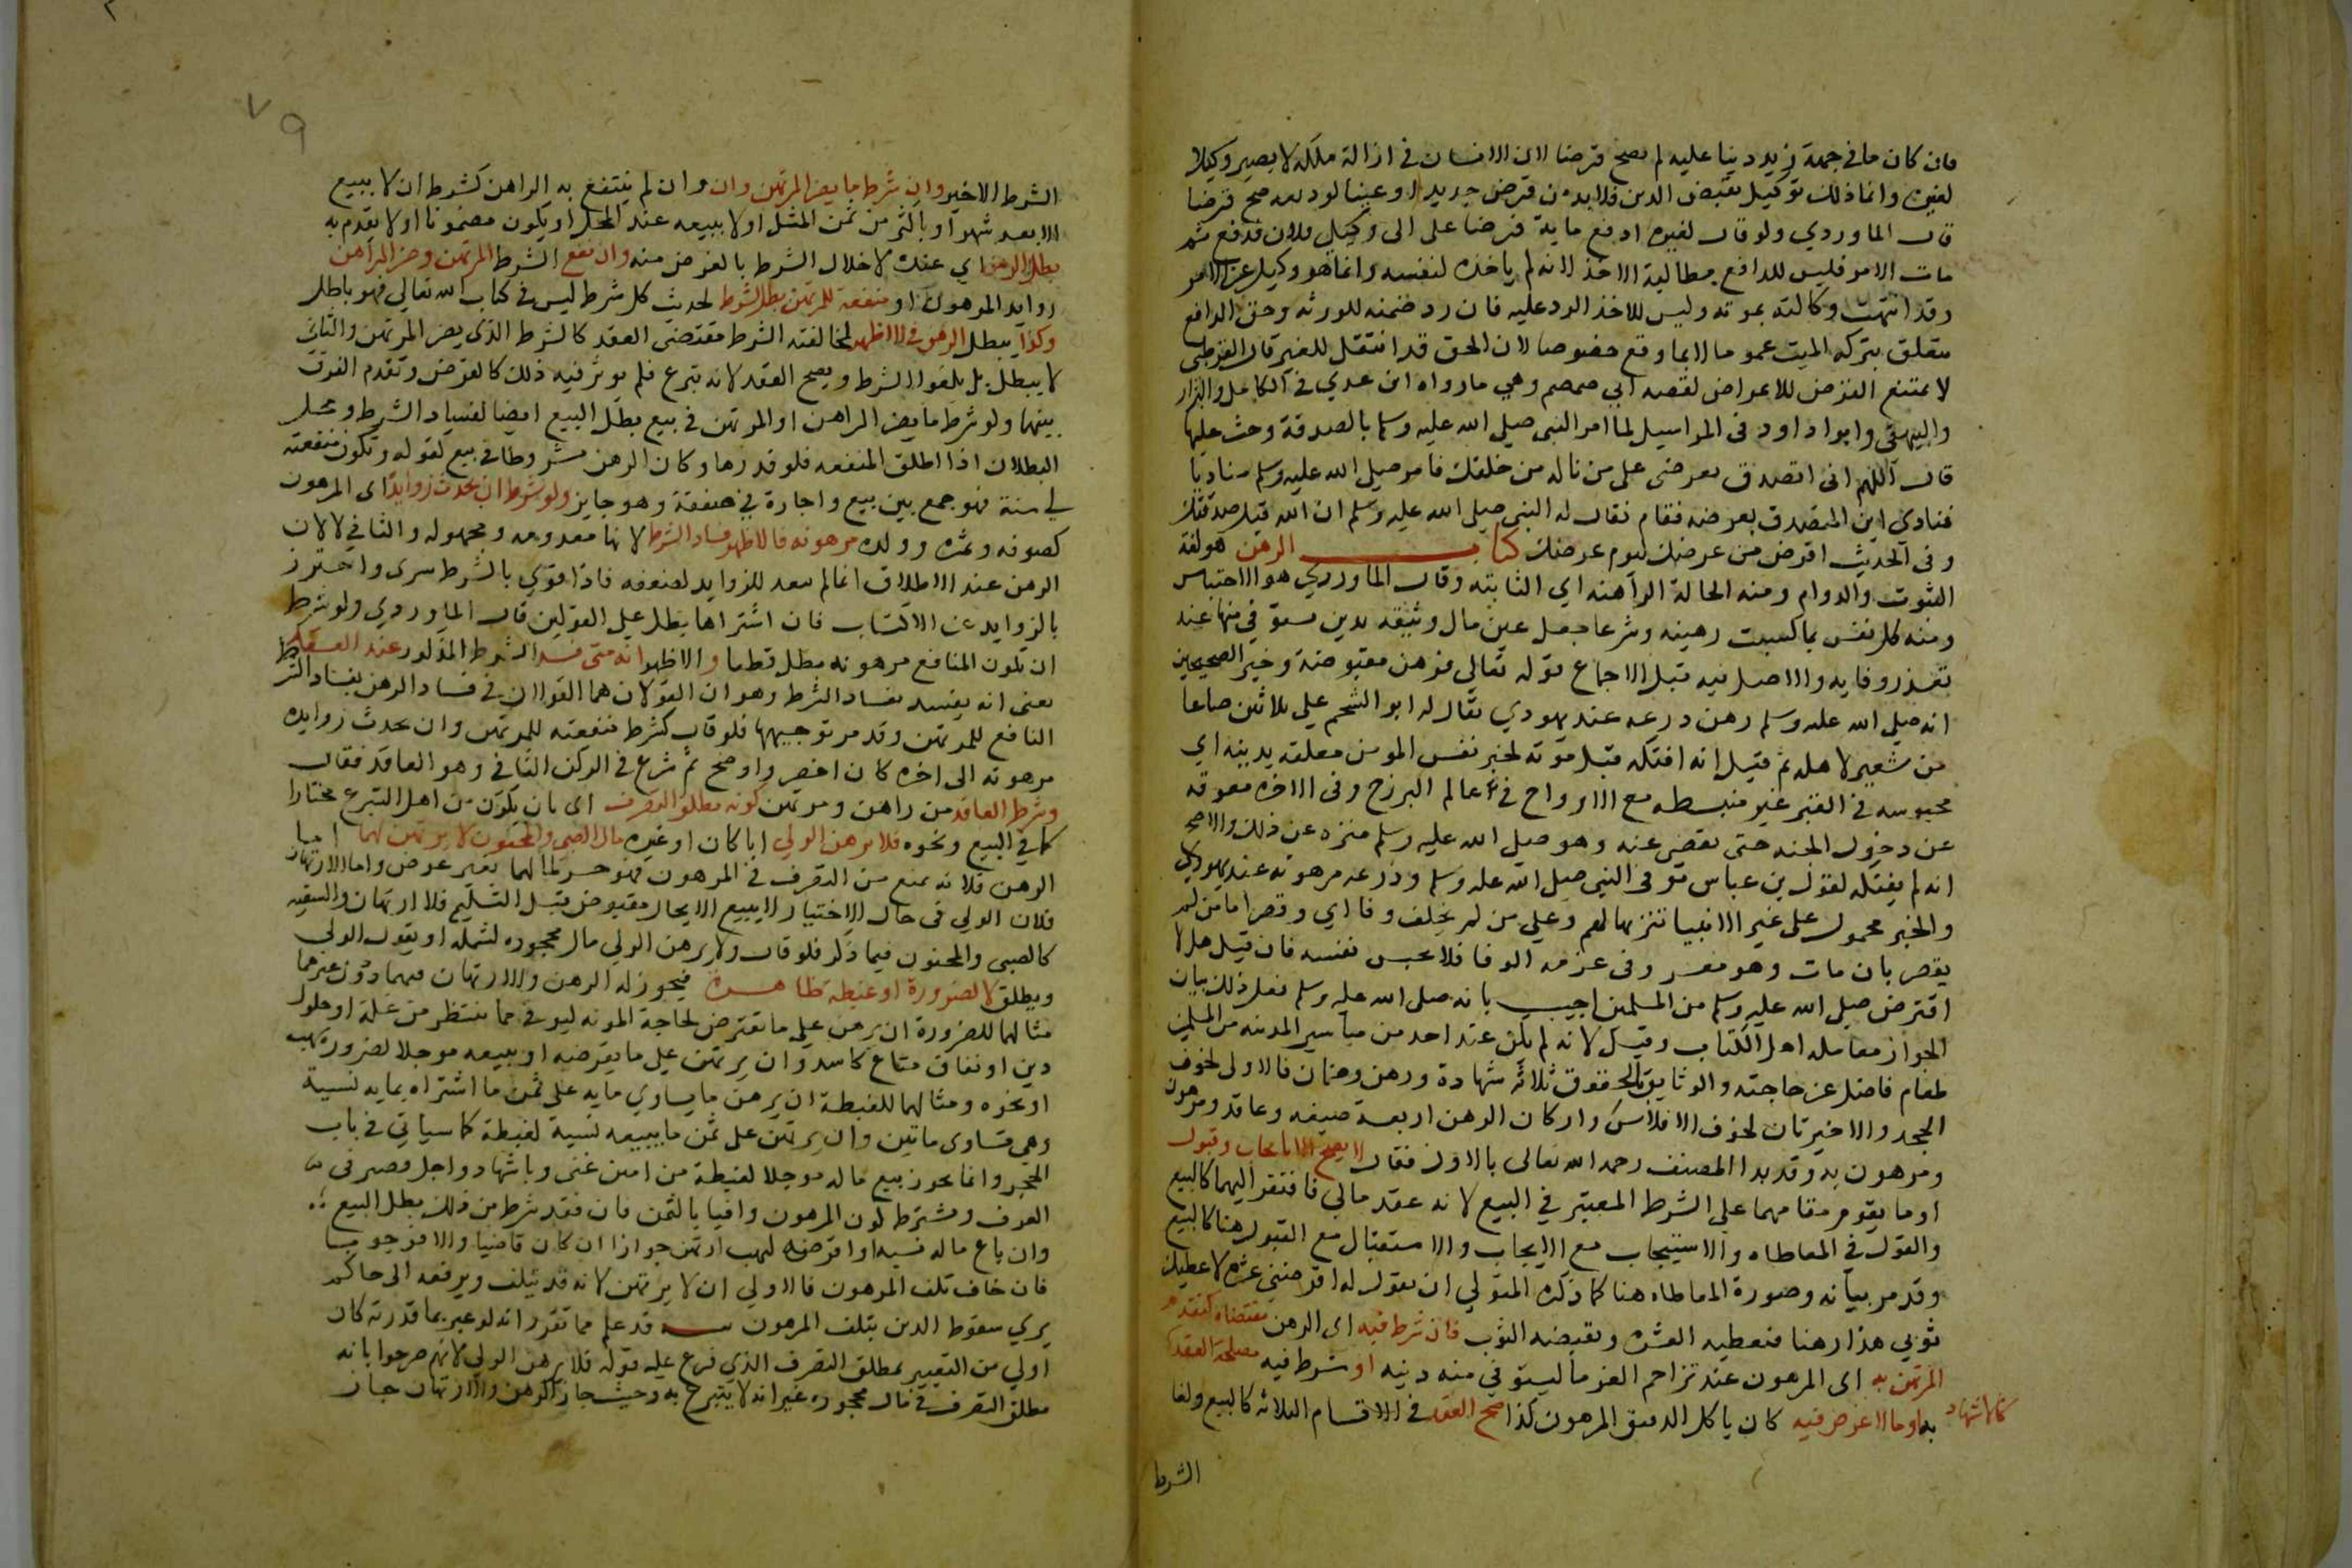 فان كان ما في جهة زيد دينا عليه لم يصح قرضا لان الانسان في ازالة ملكه لا يصير وكيلا
لغيره وانما ذلك توكيل بقبض الدين فلا بد من قرض جديد او عينا لوديعه صح قرضا
قال الماوردي ولو قال لغيره ادفع ماية قرضا على الى وكيلي فلان فدفع ثم
مات الامر فليس للدافع مطالبة الاخذ لانه لم ياخذه لنفسه وانما هو وكيل عن الامر
وقد انتهت وكالته بموته وليس للاخذ الرد عليه فان رد ضمنه للورثه وحق الدافع
يتعلق بتركه الميت عموما لا بما وقع خصوصا لان الحق قد انتقل للغير قال القرطبي
لا يمتنع القرض للاعراض لقصه ابي ضمضم وهي ما رواه ابن عدي في الكامل والبزار
والبيهقي وابوا داود في المراسيل لما امر النبي صلى الله عليه وسلم بالصدقة وحث عليها
قال اللهم اني اتصدق بعرضي على من ناله من خلقك فامر صلى الله عليه وسلم مناديا
فنادي اين المتصدق بعرضه فقام فقال له النبي صلى الله عليه وسلم ان الله قبل صدقتك
وفي الحديث اقرض من عرضك ليوم عرضك كتاب الرهن هو لغة
الثبوت والدوام ومنه الحالة الراهنه اي الثابته وقال الماوردي هو الاحتباس
ومنه كل نفس بما كسبت رهينه وشرعا جعل عين مال وثيقه بدين يستوفي منها عند
تعذر وفايه والاصل فيه قبل الاجماع قوله تعالى فرهن مقبوضة وخبر الصحيحين
انه صلى الله عليه وسلم رهن درعه عند يهودي يقال له ابو الشحم على ثلاثين صاعا
من شعير لاهله ثم قيل انه افتكه قبل موته لخبر نفس المومن معلقه بدينه اي
محبوسه في القبر غير منبسطه مع الارواح في عالم البرزخ وفي الاخره معوقه
عن دخول الجنه حتى يقضى عنه وهو صلى الله عليه وسلم منزه عن ذلك والاصح
انه لم يفتكه لقول بن عباس توفي النبي صلى الله عليه وسلم ودرعه مرهونه عند يهودي
والخبر محمول على غير الانبيا تنزيها لهم وعلى من لم يخلف وفا اي وقصر اما من لم
يقصر بان مات وهو معسر وفي عزمه الوفا فلا تحبس نفسه فان قيل هلا
اقترض صلى الله عليه وسلم من المسلمين اجيب بانه صلى الله عليه وسلم فعل ذلك لبيان
الجواز معامله اهل الكتاب وقيل لانه لم يكن عند احد من مياسير المدينه من المسلمين
طعام فاضل عن حاجته والوثايق بالحقوق ثلاثة شهادة ورهن وضمان فالاولى لخوف
الجحد والاخيرتان لخوف الافلاس واركان الرهن اربعة صيغه وعاقد ومرهون
ومرهون به وقد بدا المصنف رحمه الله تعالى بالاول فقال لا يصح الا بايجاب وقبول
او ما يقوم مقامهما على الشرط المعتبر في البيع لانه عقد مالي فافتقر اليهما كالبيع
والقول في المعاطاه والاستيجاب مع الايجاب والاستقبال مع القبول هنا كالبيع
وقد مر بيانه وصورة المعاطاه هنا كما ذكره المتولي ان يقول له اقرضني عشره لاعطيك
ثوبي هذا رهنا فيعطيه العشره ويقبضه الثوب فان شرط فيه اي الرهن مقتضاه كتقدم
المرتهن به اي المرهون عند تزاحم الغرما ليستوفي منه دينه او شرط فيه مصلحة العقد
كالاشهاد به او ما لا غرض فيه كان ياكل الرقيق المرهون كذا صح العقد في الاقسام الثلاثه كالبيع ولغا
الشرط
٧٩
الشرط الاخير وان شرط ما يضر المرتهن وان وان لم ينتفع به الراهن كشرط ان لا يبيع
الا بعد شهر او باكثر من ثمن المثل او لا يبيعه عند المحل او يكون مضمونا او لا يقدم به
بطل الرهن اي عقده لاخلال الشرط بالغرض منه وان نفع الشرط المرتهن وضر الراهن
زوايد المرهون او منفعة للمرتهن بطل الشرط لحديث كل شرط ليس في كتاب الله تعالى فهو باطل
وكذا يبطل الرهن في الاظهر لمخالفته الشرط مقتضى العقد كالشرط الذي يضر المرتهن والثاني
لا يبطل بل يلغوا الشرط ويصح العقد لانه تبرع فلم يوثر فيه ذلك كالقرض وتقدم الفرق
بينهما ولو شرط ما يضر الراهن او المرتهن في بيع بطل البيع ايضا لفساد الشرط ومحل
البطلان اذا اطلق المنفعه فلو قدرها وكان الرهن مشروطا في بيع لقوله وتكون منفعته
لي سنة فهو جمع بين بيع واجارة في صفقة وهو جايز ولو شرط ان تحدث زوايدا اي المرهون
كصوفه وثمره وولده مرهونه فالاظهر فساد الشرط لانها معدومه ومجهوله والثاني لا لان
الرهن عند الاطلاق انما لم يتعد للزوايد لضعفه فاذا قوي بالشرط سرى واحترز
بالزوايد عن الاكتساب فان اشتراها بطل على القولين قال الماوردي ولو شرط
ان تكون المنافع مرهونه بطل قطعا والاظهر انه متى فسد الشرط المذكور عند العقد
يعني انه يفسد بفساد الشرط وهو ان القولان هما القولان في فساد الرهن بفساد الشرط
النافع للمرتهن وقد مر توجيهها فلو قال كشرط منفعته للمرتهن وان تحدث زوايده
مرهونه الى اخره كان اخصر واوضح ثم شرع في الركن الثاني وهو العاقد فقال
وشرط العاقد من راهن ومرتهن كونه مطلق التصرف اي بان يكون من اهل التبرع مختارا
كما في البيع ونحوه فلا يرهن الولي ابا كان او غيره مال الصبي والمجنون ولا يرتهن لهما اما
الرهن فلانه يمنع من التصرف في المرهون فهو حبس لمالهما بغير عوض واما الارتهان
فلان الولي في حال الاختيار لا يبيع الا بحال مقبوض قبل التسليم فلا ارتهان والسفيه
كالصبي والمجنون فيما ذكر فلو قال ولا يرهن الولي مال محجوره لشمله او يقول الولي
ويطلق الا لضرورة او غبطة ظاهره فيجوز له الرهن والارتهان فيهما دون غيرهما
مثالهما للضرورة ان يرهن على ما يقترض لحاجة المونه ليوفي مما ينتظر من غلة او حلول
دين او نفاق متاع كاسد وان يرتهن على ما يقرضه او يبيعه موجلا لضرورة نهب
او نحوه ومثالهما للغبطة ان يرهن ما يساوي مايه على ثمن ما اشتراه بمايه نسية
وهي تساوي ماتين وان يرتهن على ثمن ما يبيعه نسية لغبطة كما سياتي في باب
الحجر وانما يجوز بيع ماله موجلا لغبطة من امين غني وباشهاد واجل قصير في
العرف ويشترط كون المرهون وافيا بالثمن فان فقد شرط من ذلك بطل البيع
وان باع ماله نسية او اقرضه لنهب ارتهن جوازا ان كان قاضيا والا فوجوبا
فان خاف تلف المرهون فالاولى ان لا يرتهن لانه قد يتلف ويرفعه الى حاكم
يرى سقوط الدين بتلف المرهون قد علم مما تقرر انه لو عبر بما قدرته كان
اولى من التعبير بمطلق التصرف الذي فرع عليه قوله فلا يرهن الولي لانهم صرحوا بانه
مطلق التصرف في مال محجوره غير انه لا يتبرع به وحيث جاز الرهن والارتهان جاز